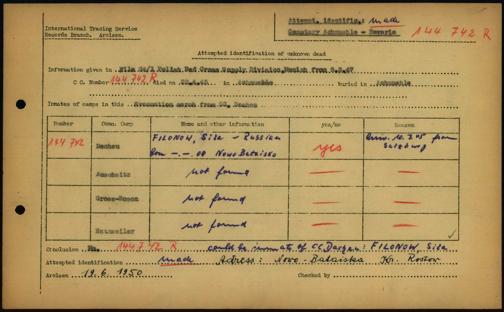 International Tracing Service
Records Branch. Arolsen.
Attempt. identific.: made
Cemetery Achmuehle - Bavaria
144 742 R
Attempted identification of unknown dead
Information given in File Polish Red Cross Supply Division, Munich from
C.C. Number 144742 R died on in Achmuehle buried in Achmuehle
Inmates of camps in this Evacuation march from CC, Dachau
Number Conc. Camp Name and other information yes/no Reason
144 742 Dachau FILONOW, - Russian yes from
born -.-. 08 Nowo Bataisko Salzburg
Auschwitz not found
Gross-Rosen not found
Natzweiler not found
Conclusion No. 144742 R could be inmate of CC Dachau: FILONOW,
Attempted identification made Adress: Nowo-Bataiska Kr. Rostow
Arolsen 19.6.1950 Checked by